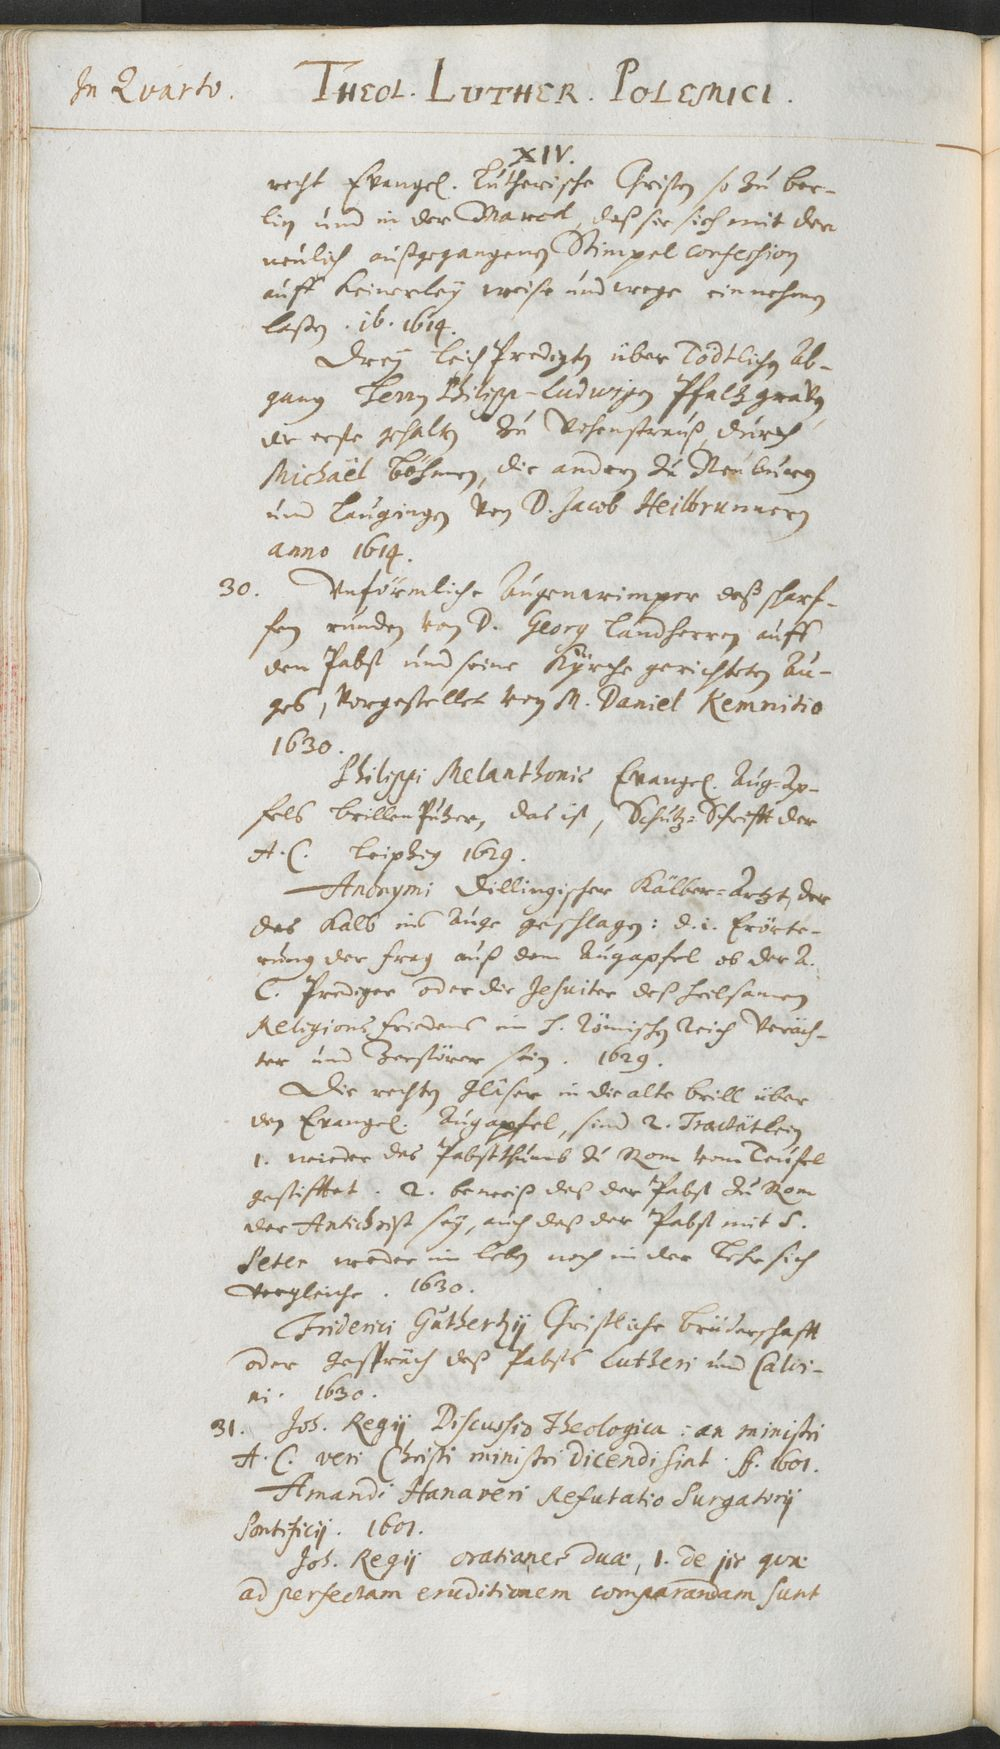 In Quarto. THEOL. LUTHER. POLEMICI.
XIV.
recht Evangel. Lutherische Christen so zu Ber-
lin und in der Marck, daß sie sich mit der
neulich außgegangenen Stimpel Confession
auff keinerley weise und wege einnehmen
laßen. ib. 1614.
Drey Leich Predigten über Tödtlichen Ab-
gang Herrn Philipp-Ludwigen Pfaltzgraven
die erste gehalten zu Vohenstrauß, durch
Michaël Böhmen, die andern zu Neuburg
und Laugingen von D. Jacob Heilbrunnern
anno 1614.
30. Unförmliche Augenwimper deß scharf-
fen runden von D. Georg Landherren auff
den Pabst und seine Kyrche gerichteten Au-
ges, Vorgestellet von M. Daniel Kemnitio
1630.
Philippi Melanthonis Evangel. Aug-Ap-
fels brillen Putzer, das ist, Schutz-Schrifft der
A. C. Leipzig 1629.
Anonymi Dillingischer Kälber-Artzt, der
das Kalb ins Auge geschlagen: d. i. Erörte-
rung der frag auß dem Augapfel ob der A.
C. Prediger oder die Jesuiter deß heilsamen
Religions friedens im H. Römischen Reich Veräch-
ter und Zerstörer sein. 1629.
Die rechten Gläser in die alte brill über
den Evangel. Augapfel, sind 2. Tractätlein
1. wieder das Pabstthumb zu Rom vom Teufel
gestifftet. 2. beweiß daß der Pabst zu Rom
der Antichrist sey, auch daß der Pabst mit S.
Peter weder im leben noch in der Lehr sich
vergleiche. 1630.
Friderici Guthertzij Christliche Brüderschafft
oder Gespräch deß Pabsts Lutheri und Calvi-
ni. 1630.
31. Joh. Regij Discussio Theologica: an ministri
A. C. veri Christi ministri dicendi sint. ff. 1601.
Amandi Hanaveri Refutatio Purgatorij
Pontificij. 1601.
Joh. Regij orationes duæ, 1. de iis quæ
ad perfectam eruditionem comparandam sunt